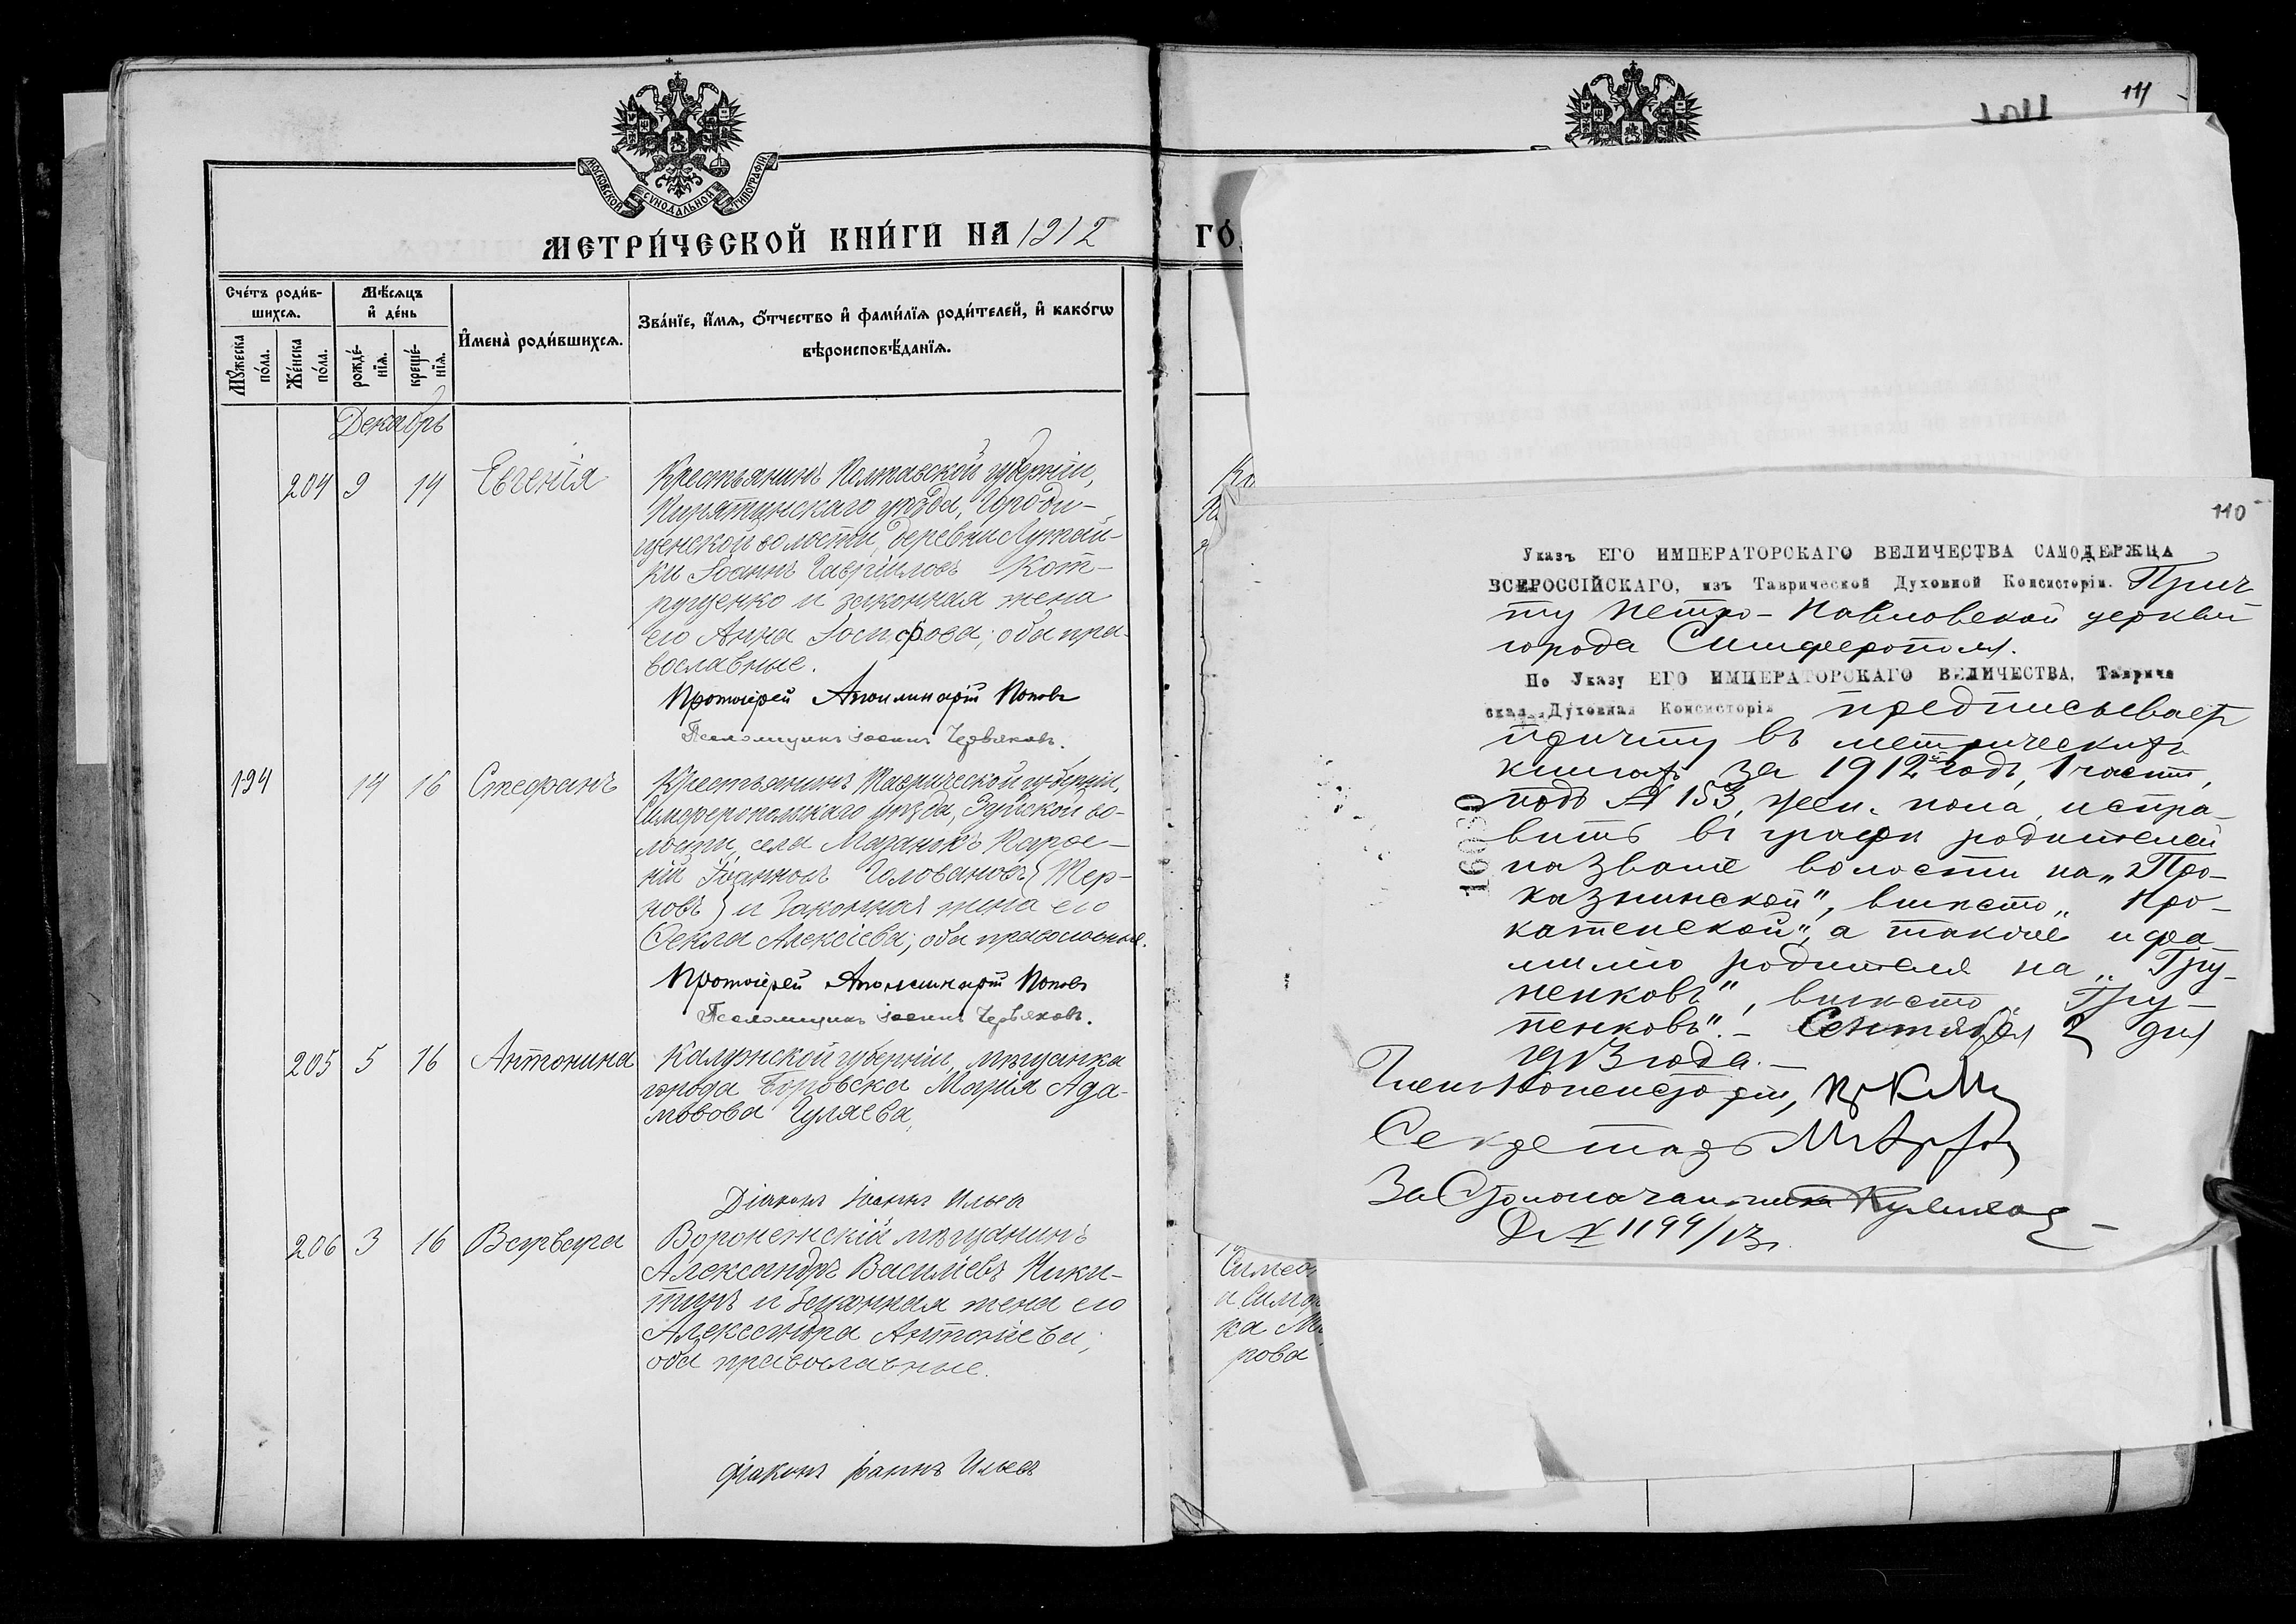 МОСКОВСКОЙ СУНОДАЛЬНОЙ ТИПОГРАФІИ
МЕТРИ́ЧЕСКОЙ КНИ́ГИ НА 1912
Сче́тъ роди́в-
шихся.
Мѣ́сяцъ
и҆ де́нь
Му́жеска
по́ла.
Же́нска
по́ла.
рожде́-
нїя.
креще́-
нїя.
И҆мена̀ роди́вшихся.
Зва́нїе, и҆́мя, о҆́тчество и҆ фами́лїя роди́телей, и҆ како́гѡ
вѣроисповѣ́данїя.
Декабрь
204 9 14 Евгенія
Крестьянинъ Полтавской губерніи,
Пирятинскаго уѣзда, Городи-
щенской волости, деревни Лутай-
ки Іоаннъ Гавріиловъ Кот-
рущенко и законная жена
его Анна Іосифова; оба пра-
вославные.
Протоіерей Аполлинарій Поповъ
Псаломщикъ Іоаннъ Червяковъ.
194 14 16 Стефанъ
Крестьянинъ Таврической губерніи,
Симферопольскаго уѣзда, Зуйской во-
лости, села Мазанкъ Парѳе-
ній Іоанновъ Головановъ (Тер-
новъ) и законная жена его
Ѳекла Алексіева; оба православные.
Протоіерей Аполлинарій Поповъ
Псаломщикъ Іоаннъ Червяковъ.
205 5 16 Антонина
Калужской губерніи, мѣщанка
города Боровска Марія Ада-
мовова Гуляева,
Діаконъ Іоаннъ Ильевъ
206 3 16 Варвара
Воронежскій мѣщанинъ
Александръ Василіевъ Ники-
тинъ и законная жена его
Александра Антоніева;
оба православные.
Діаконъ Іоаннъ Ильевъ
ГО́
111
110
Указъ ЕГО ИМПЕРАТОРСКАГО ВЕЛИЧЕСТВА САМОДЕРЖЦА
ВСЕРОССІЙСКАГО, изъ Таврической Духовной Консисторіи. Прич
ту Петро-Павловской церкви
города Симферополя.
По Указу ЕГО ИМПЕРАТОРСКАГО ВЕЛИЧЕСТВА, Тавриче
ская Духовная Консисторія предписываетъ
причту въ метрическихъ
книгахъ за 1912й годъ, 1 части,
подъ № 153, жен. пола, испра-
вить въ графѣ родителей
названіе волости на „Про-
казнинской“, вмѣсто „Про-
катенской“, а также и фа-
милію родителя на „Гру-
ненковъ“, вмѣсто „Гру-
пенковъ“.- Сентября 2 дня
1913 года.-
16080
Членъ Консисторіи,
Секретарь
За Столоначальника
Д. № 1199/13.
Симео
и Симф
ка
рова